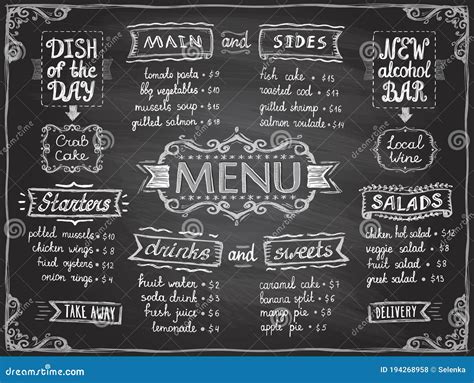 DISH
of the
DAY
Crab
Cake
MAIN and SIDES
tomato pasta • $9
bbq vegetables • $10
mussels soup • $15
grilled salmon • $18
fish cake • $15
roasted cod • $17
grilled shrimp • $16
salmon roulade • $14
NEW
alcohol
BAR
Local
Wine
MENU
Starters
mussels • $10
chicken wings
fried oysters
onion rings
TAKE AWAY
drinks and sweets
fruit water • $2
soda drink • $3
fresh juice • $6
lemonade • $4
caramel cake
banana split
mango pie
apple pie • $5
SALADS
hot salad
veggie salad
fruit salad
greek salad
DELIVERY
dreamstime.com
ID 194268958 © Selenka